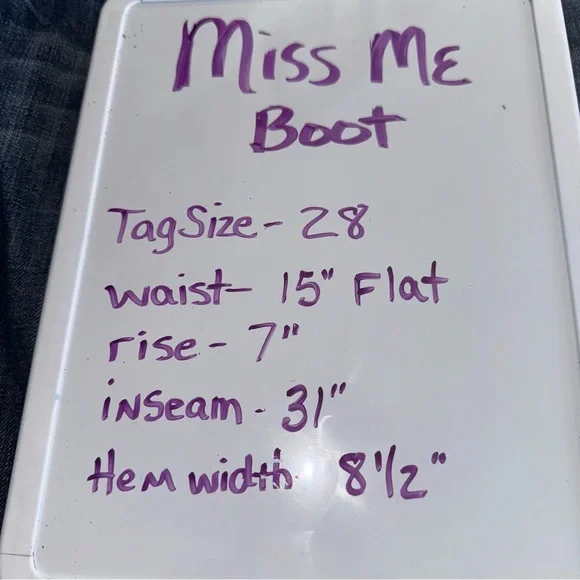 Miss Me
Boot
Tag Size - 28
waist - 15" Flat
rise - 7"
inseam - 31"
Hem width 8 1/2"